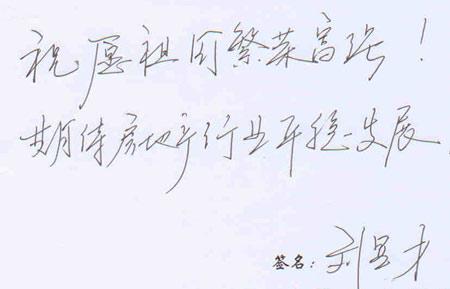 祝愿祖国繁荣富强！
期待房地产行业平稳发展
签名：